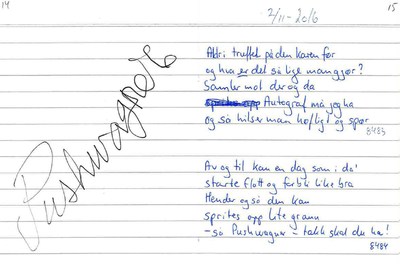 14
Pushwagner
2/11-2016
15
Aldri truffet på den karen før
og hva er det så lige man gjør?
Samler mot der og da
Autograf må jeg ha
og så hilser man høfligt og spør
8483
Av og til kan en dag som i da'
starte flott og forbli like bra
Hender også den kan
sprites opp lite grann
- så Pushwagner - takk skal du ha!
8484